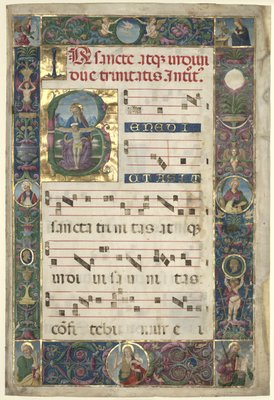 IN sancte atq; indiui
due trinitatis Introit.
B
ENEDI
CTA SIT
sancta trinitas atq;
indiuisa unitas
confi tebimur e i